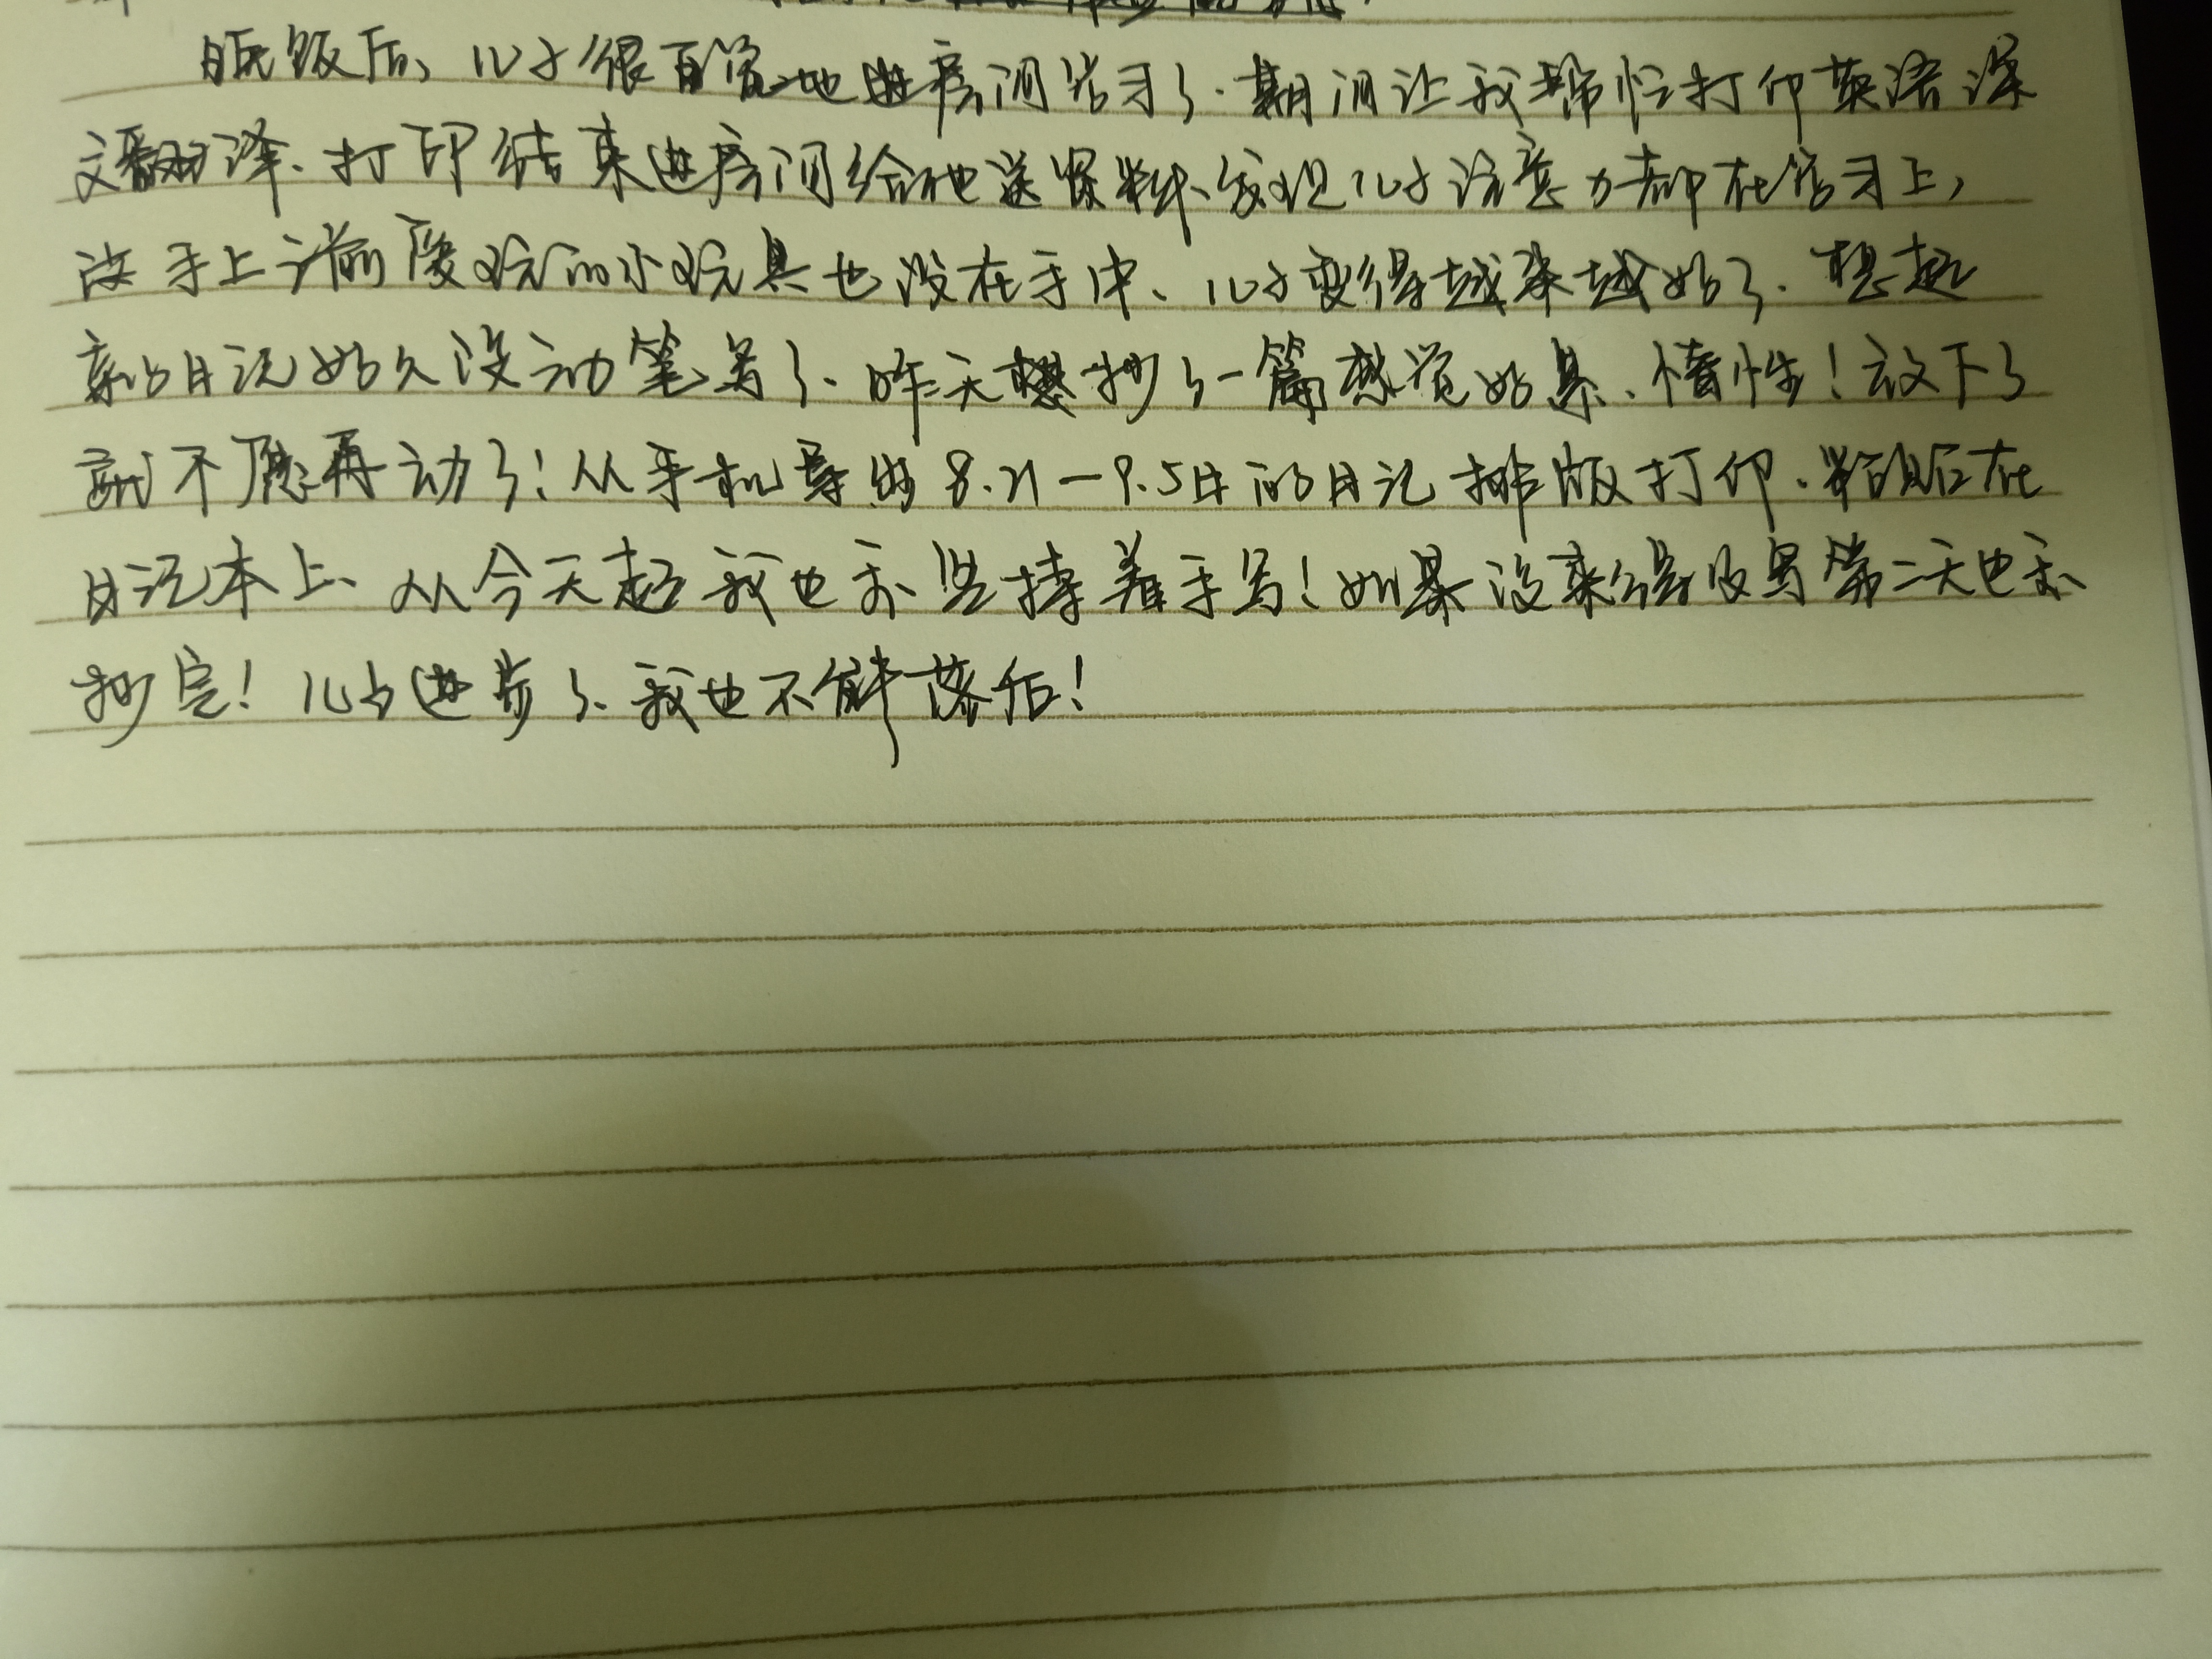 晚饭后、儿子很自觉地进房间学习了.期间让我帮忙打印英语课
文翻译、打印结束进房间给他送资料、发现儿子注意力都在学习上,
放手上之前爱玩的小玩具也没在手中、儿子变得越来越好了.想起
亲的日记好久没动笔写了、昨天想抄了一篇感觉好累、惰性!放下了
就不愿再动了!从手机导出8.21—9.5日的日记排版打印.粘贴在
日记本上、从今天起我也要坚持着手写!如果没来得及写第二天也要
抄完!儿子进步了、我也不能落后!